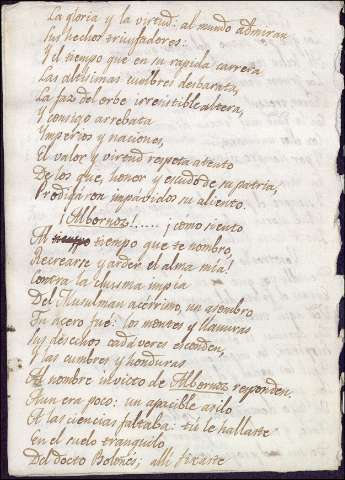 La gloria y la virtud: al mundo admiran
Sus hechos triunfadores:
Y el tiempo que en su rapida carrera
Las altisimas cumbres desbarata,
La faz del orbe irresistible altera,
Y consigo arrebata
Imperios y naciones,
El valor y virtud respeta atento
De los que, honor y escudo de su patria,
Prodigáron impavidos su aliento.
¡Albornoz!..... ¡cómo siento
Al tiempo tiempo que te nombro,
Recrearse y arder el alma mia!
Contra la chusma impia
Del Musulman acérrimo, un asombro
Tu acero fué: los montes y llanuras
Sus deshechos cadáveres esconden,
Y las cumbres y honduras
Al nombre invicto de Albornoz responden.
Aun era poco: un apacible asilo
A las ciencias faltaba: tú le hallaste
En el suelo tranquilo
Del docto Boloñés; allí fixaste